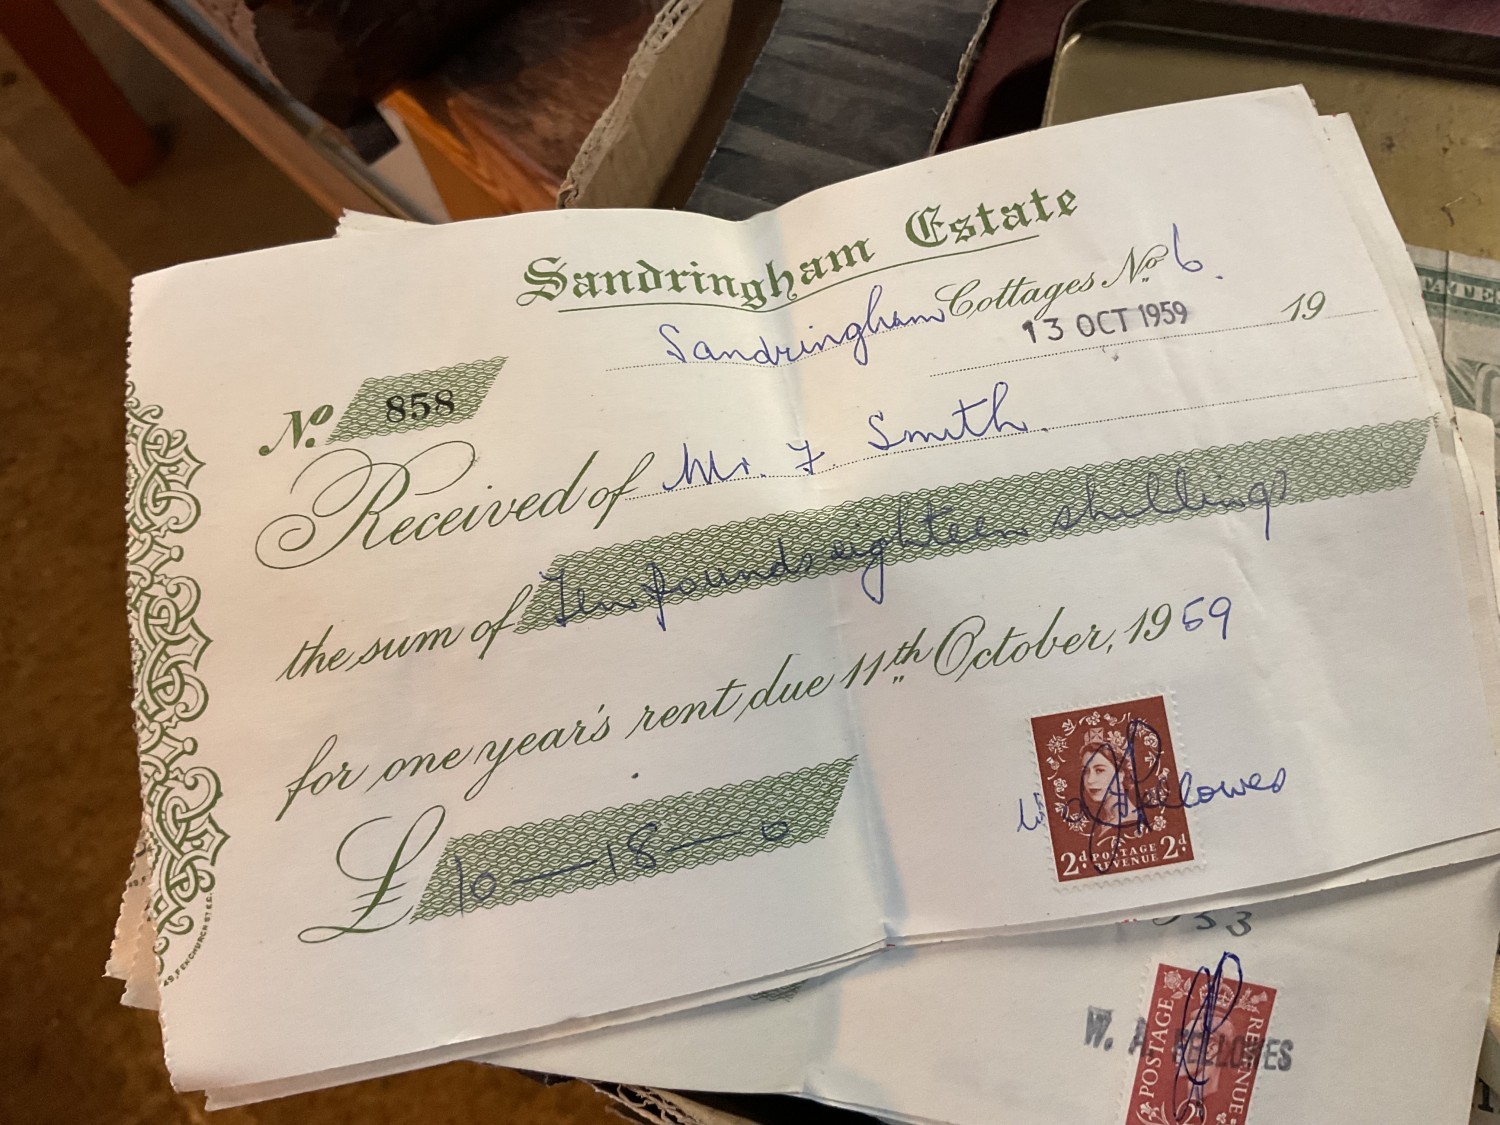 Sandringham Estate
Sandringham Cottages No. 6.
13 OCT 1959 19
No. 858
Received of Mr. F. Smith.
the sum of Ten pounds eighteen shillings
for one year's rent due 11th October, 1959
£ 10 — 18 — 0
W A Fellowes
2d POSTAGE REVENUE 2d
49, FENCHURCH ST E.C.
953
W. A. FELLOWES
POSTAGE REVENUE